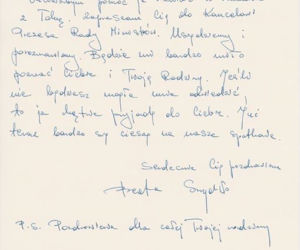 z Tobą i zapraszam Cię do Kancelarii
Prezesa Rady Ministrów. Usiądziemy i
porozmawiamy. Będzie mi bardzo miło
poznać Ciebie i Twoją Rodzinę. Jeśli
nie będziesz mogła mnie odwiedzić
to ja chętnie przyjadę do Ciebie. Już
teraz bardzo się cieszę na nasze spotkanie.
Serdecznie Cię pozdrawiam
Beata Szydło
P.S. Pozdrowienia dla całej Twojej rodziny